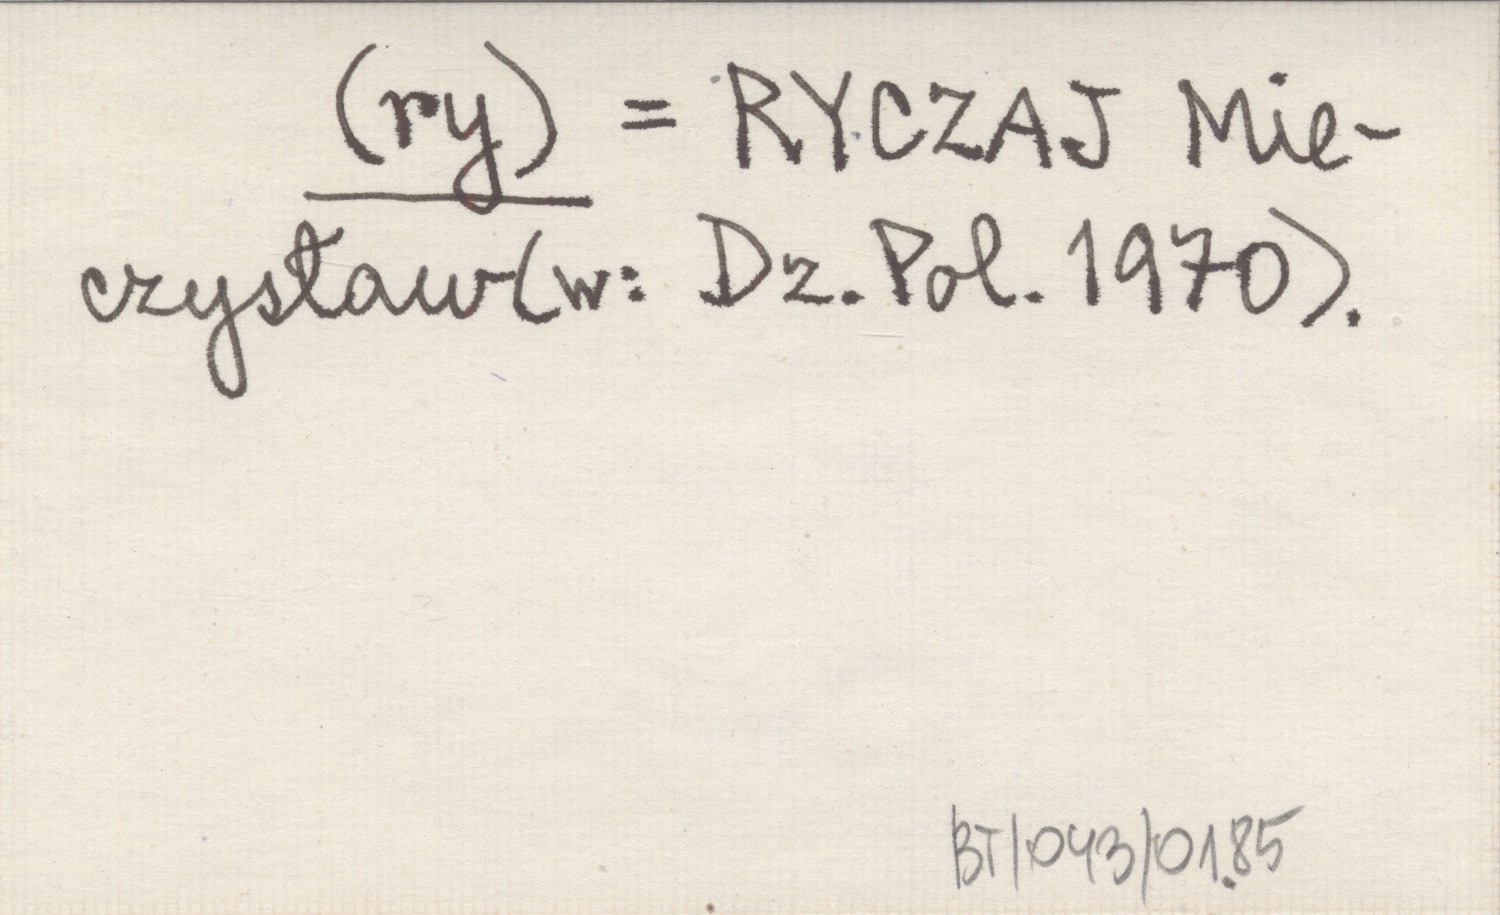 (ry) = RYCZAJ Mie-
czysław (w: Dz. Pol. 1970).
BT/043/01.85